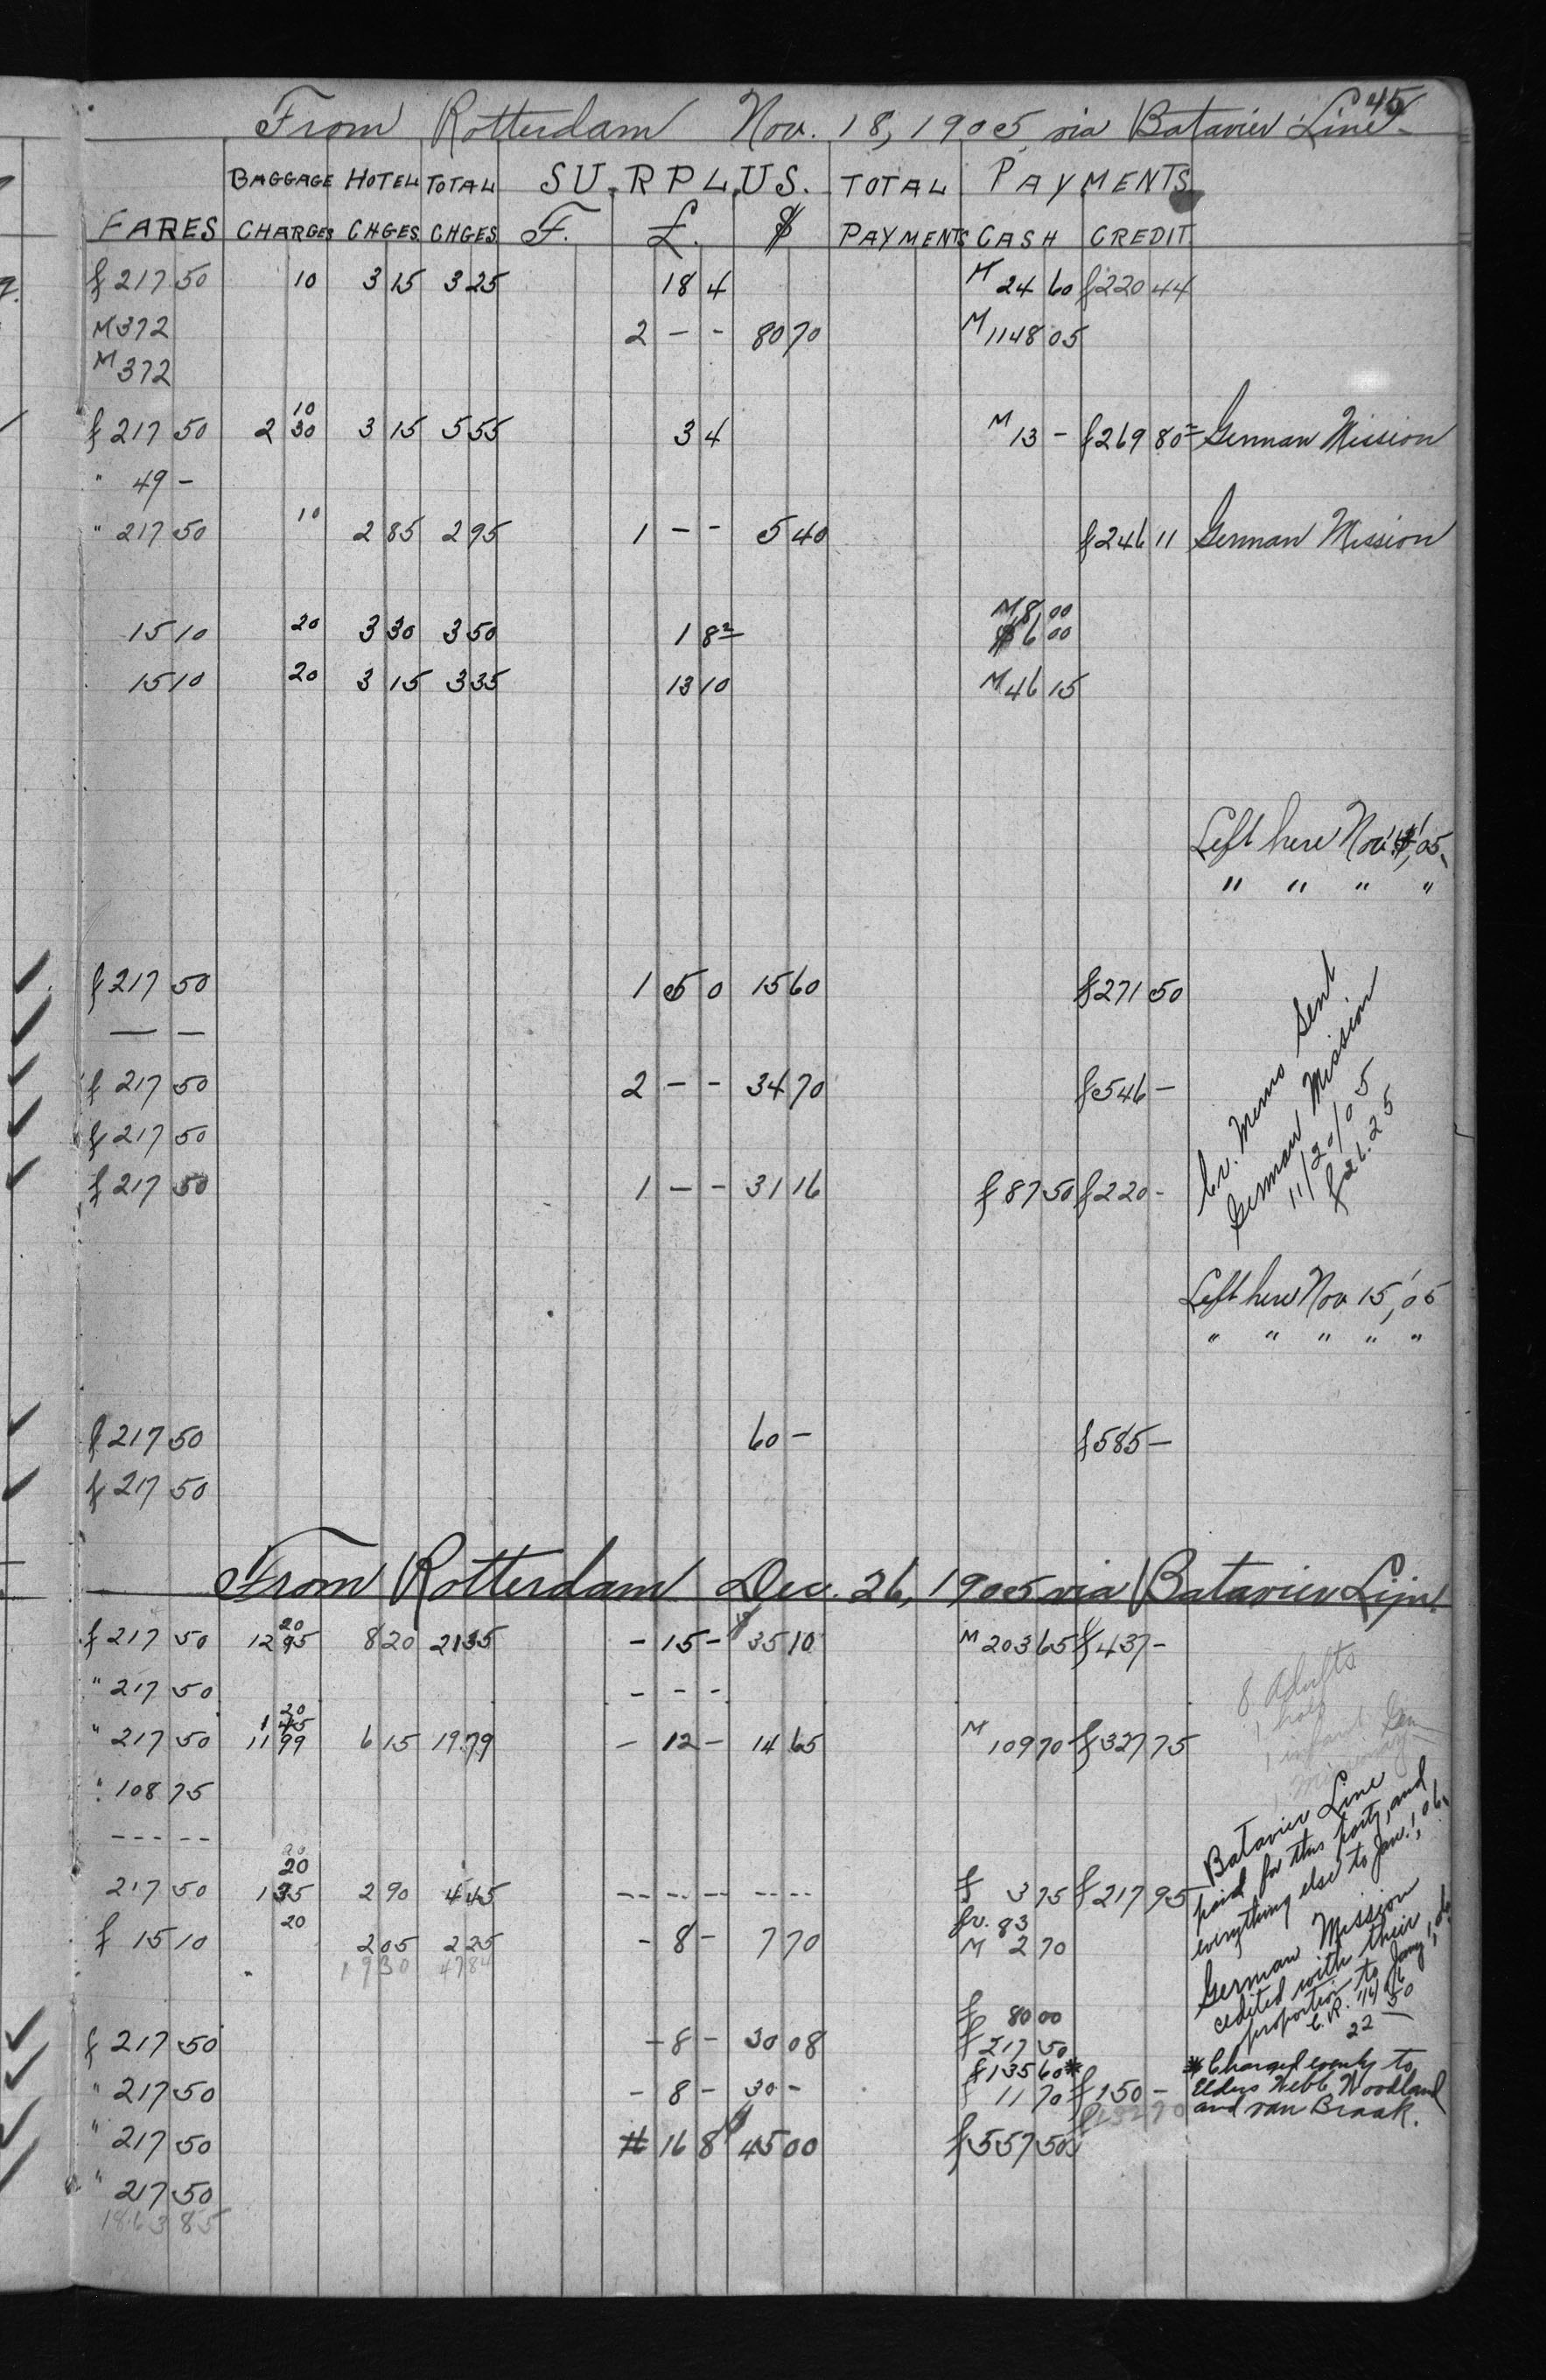 45
From Rotterdam Nov. 18, 1905 via Batavier Line.
BAGGAGE HOTEL TOTAL SURPLUS. TOTAL PAYMENTS
FARES CHARGES CHGES. CHGES. F. £. $ PAYMENTS CASH CREDIT.
f 217 50 10 3 15 3 25 18 4 M 24 60 f 220 44
M 372 2 - - 80 70 M 1148 05
M 372
10
f 217 50 2 30 3 15 5 55 3 4 M 13 - f 269 80 German Mission
" 49 -
" 217 50 10 2 85 2 95 1 - - 5 40 f 246 11 German Mission
M 8 00
15 10 20 3 30 3 50 1 8 $ 6 00
15 10 20 3 15 3 35 13 10 M 46 15
Left here Nov. '05.
" " " "
f 217 50 1 5 0 15 60 f 271 50
— —
f 217 50 2 - - 34 70 f 546 -
f 217 50
f 217 50 1 - - 31 16 f 87 50 f 220 -
Cr. Memo Sent
German Mission
11/20/05
f 26.25
Left here Nov 15, '05
" " " " "
f 217 50 60 - f 585 -
f 217 50
From Rotterdam Dec. 26, 1905 via Batavier Lijn.
20
f 217 50 12 95 8 20 21 35 - 15 - $ 35 10 M 203 65 f 437 -
" 217 50 - - -
20
1 45
" 217 50 11 99 6 15 19 79 - 12 - 14 65 M 109 70 f 327 75
" 108 75
- - - - -
8 adults
1 half
1 infant
20
20
217 50 1 35 2 90 4 45 -- -- -- -- -- f 3 75 f 217 95
fr. 83
f 15 10 20 2 05 2 25 - 8 - 7 70 M 2 70
19 30 47 84
Batavier Line
paid for this party, and
everything else to Jan. 1, '06.
German Mission
cedited with their
proportion to Jany 1, '06
C.R. 1/4 06
22 50
f 80 00
f 217 50 - 8 - 30 08 f 217 50
f 135 60*
" 217 50 - 8 - 30 - 11 70 f 150 -
" 217 50 16 8 $ 45 00 f 557 50
" 217 50
1863 85
* Charged evenly to
Elders Webb, Woodland
and van Braak.